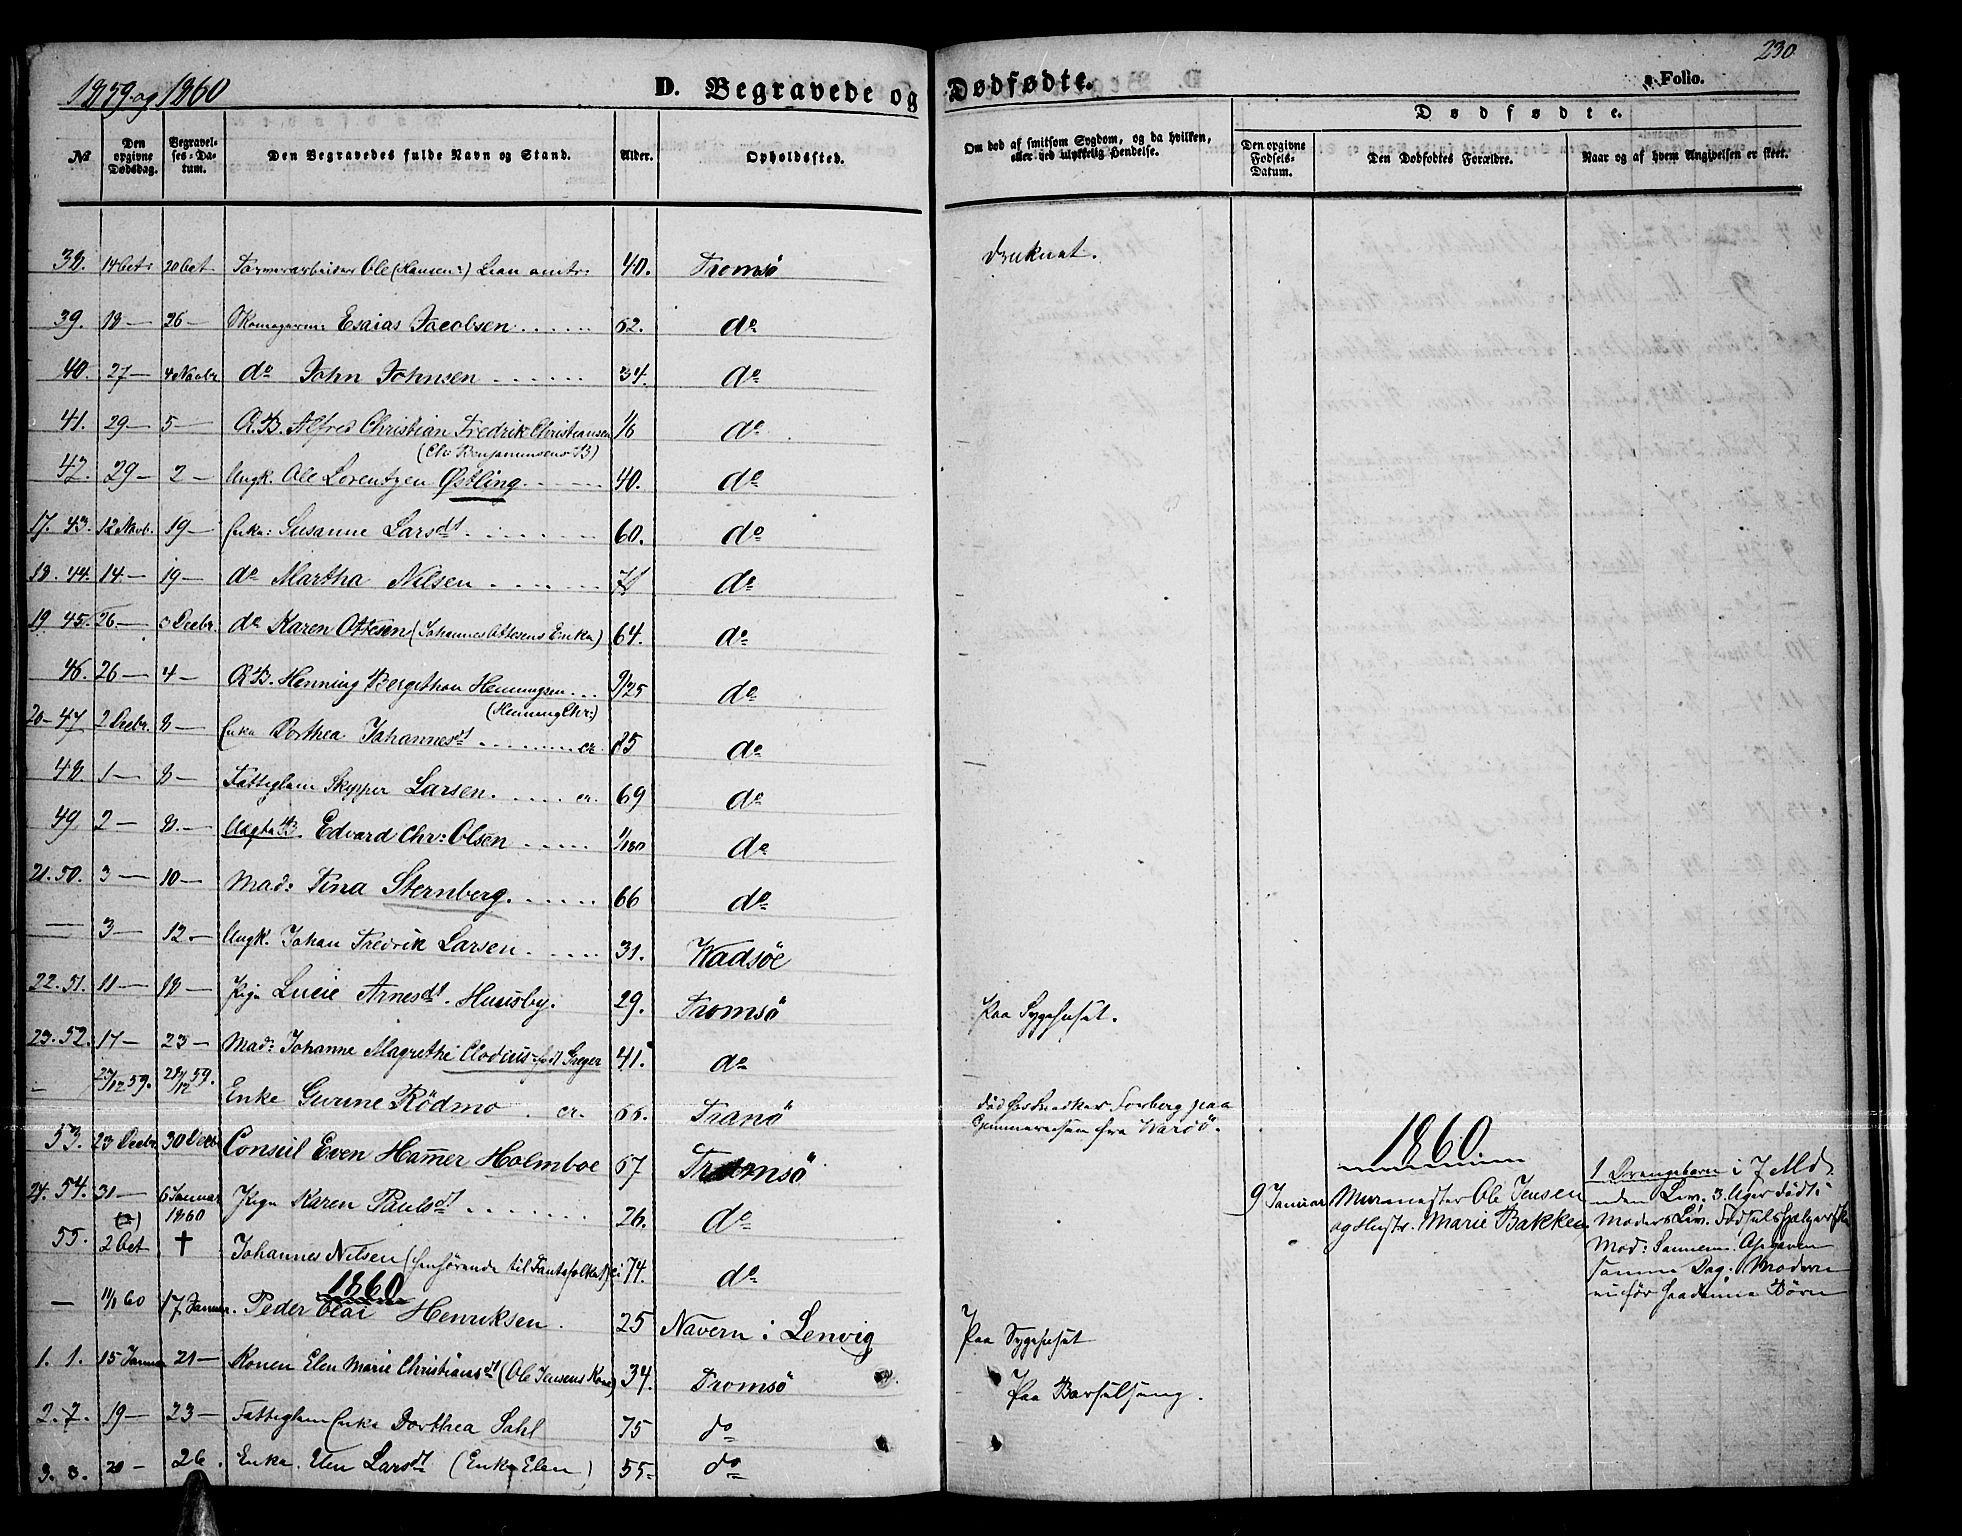 1859 og 1860 D. Begravede og Dødfødte. Folio. 230
№ Den opgivne Dødsdag. Begravelses-Datum. Den Begravedes fulde Navn og Stand. Alder. Opholdssted. Om død af smitsom Sygdom, og da hvilken, eller ved ulykkelig Hendelse.
Dødfødte.
Den opgivne Fødsels-Datum. Den Dødfødtes Forældre. Naar og af hvem Angivelsen er skeet.
38. 14 Oct: 20 Oct Ole (Hansen:) 40. Tromsø druknet.
39. 18 — 26 — Skomagerm: Esaias Jacobsen 62. do
40. 27 — 4 Novbr do John Johnsen 34. do
41. 29 — 5 — Æ.B. Alfred Christian Fredrik Christiansen 1/6 do
(Chr Benjaminsens B)
42. 29 — 2 — Ungk. Ole Lorentzen Østling 40. do
17. 43. 12 Novb. 19 — Enke: Susanne Larsdt. 60. do
18. 44. 14 — 19 — do Martha Nilsen 71 do
19 45. 26 — 3 Decbr. do Karen Ottesen (Johannes Ottesens Enke) 64. do
46. 26 — 4 — Æ.B. Henning Bergithon Henningsen 9/25 do
(Henning Chr:)
20 — 47 2 Decbr. 8 — Enke Dorthea Johannesdt cr. 85 do
48 1 — 8 — Fattiglem Skipper Larsen cr. 69 do
49 2 — 8. — Uægte B. Edvard Chr: Olsen 1/180 do
21. 50. 3 — 10 — Mad: Fina Sternberg. 66 do
— 3 — 12. — Ungk. Johan Fredrik Larsen 31. Wadsöe
22. 51. 11 — 18 — Pige Lucie Arnesdt. Huusby. 29. Tromsö Paa Sygehuset.
23. 52. 17 — 23 — Mad: Johanne Magrethe Clodius født Greger 41. do
— 23/12 59. 28/12 59. Enke Gurine Rödmo cr. 66. Tranö
Död hos Snedker Forberg paa
Gjennemreisen fra Wardö.
53. 23 Decbr 30 Decbr Consul Even Hammer Holmboe 67 Tromsö
24. 54. 31 — 6 Januar 1860 Pige Karen Paulsdt 26. do
55. 2 Oct † Johannes Nilsen (henhørende til Fantefolket) 74. do
1860
1860
9 Januar Murmester Ole Jensen
og Hustr. Marie Bakken
1 Drengebarn i 7 Md.
uden Liv. 3 Uger dødt i
Moders Liv. Födselshjælperske
Mad: Opgaven
samme Dag. Moderen
— 11/1 60 17 Januar. Peder Olai Henriksen. 25 Navern i Lenvig Paa Sygehuset
1. 1. 15 Januar 21 — Konen Elen Marie Christiansdt (Ole Jensens Kone) 34. Tromsö Paa Barselseng.
2. 2. 19 — 23 — Fattiglem Enke Dorthea Dahl 75 do
3. 3. 20 — 26. Enke. Elen Larsdt (Enke Elen) 55 — do